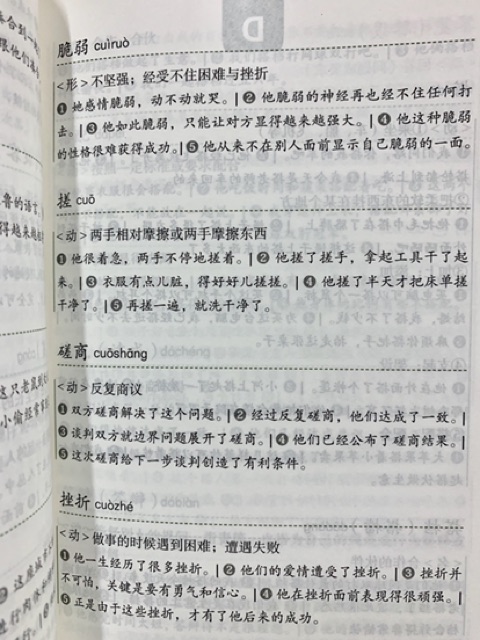 D
脆弱 cuìruò
<形> 不坚强；经受不住困难与挫折
❶ 她感情脆弱，动不动就哭。|❷ 他脆弱的神经再也经不住任何打
去。|❸ 他如此脆弱，只能让对方显得越来越强大。|❹ 他这种脆弱
的性格很难获得成功。|❺ 他从来不在别人面前显示自己脆弱的一面。
搓 cuō
<动> 两手相对摩擦或两手摩擦东西
❶ 他很着急，两手不停地搓着。|❷ 他搓了搓手，拿起工具干了起
来。|❸ 衣服有点儿脏，得好好儿搓搓。|❹ 他搓了半天才把床单搓
干净了。|❺ 再搓一遍，就洗干净了。
磋商 cuōshāng
<动> 反复商议
❶ 双方磋商解决了这个问题。|❷ 经过反复磋商，他们达成了一致。|
❸ 谈判双方就边界问题展开了磋商。|❹ 他们已经公布了磋商结果。|
❺ 这次磋商给下一步谈判创造了有利条件。
挫折 cuòzhé
<动> 做事的时候遇到困难；遭遇失败
❶ 他一生经历了很多挫折。|❷ 他们的爱情遭受了挫折。|❸ 挫折并
不可怕，关键是要有勇气和信心。|❹ 他在挫折面前表现得很顽强。|
❺ 正是由于这些挫折，才有了他后来的成功。